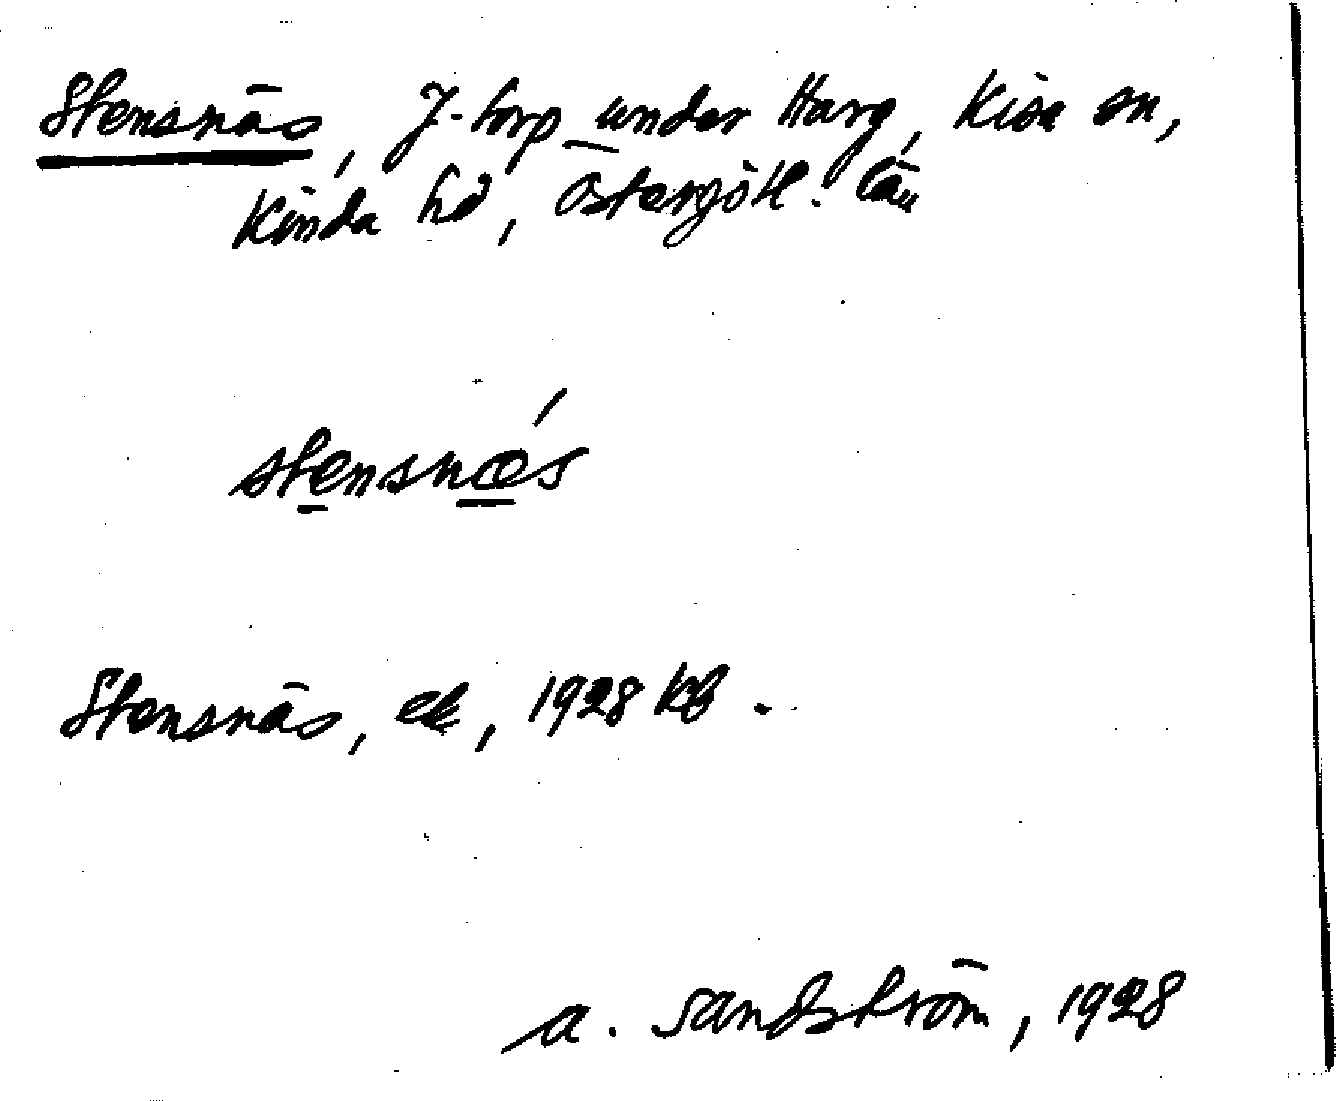 Stensnäs, J-torp under Harg, Kisa sn,
Kinda hd, Östergötl. län
stensnǽs
Stensnäs, ek, 1928 kb.
A. Sandström, 1928